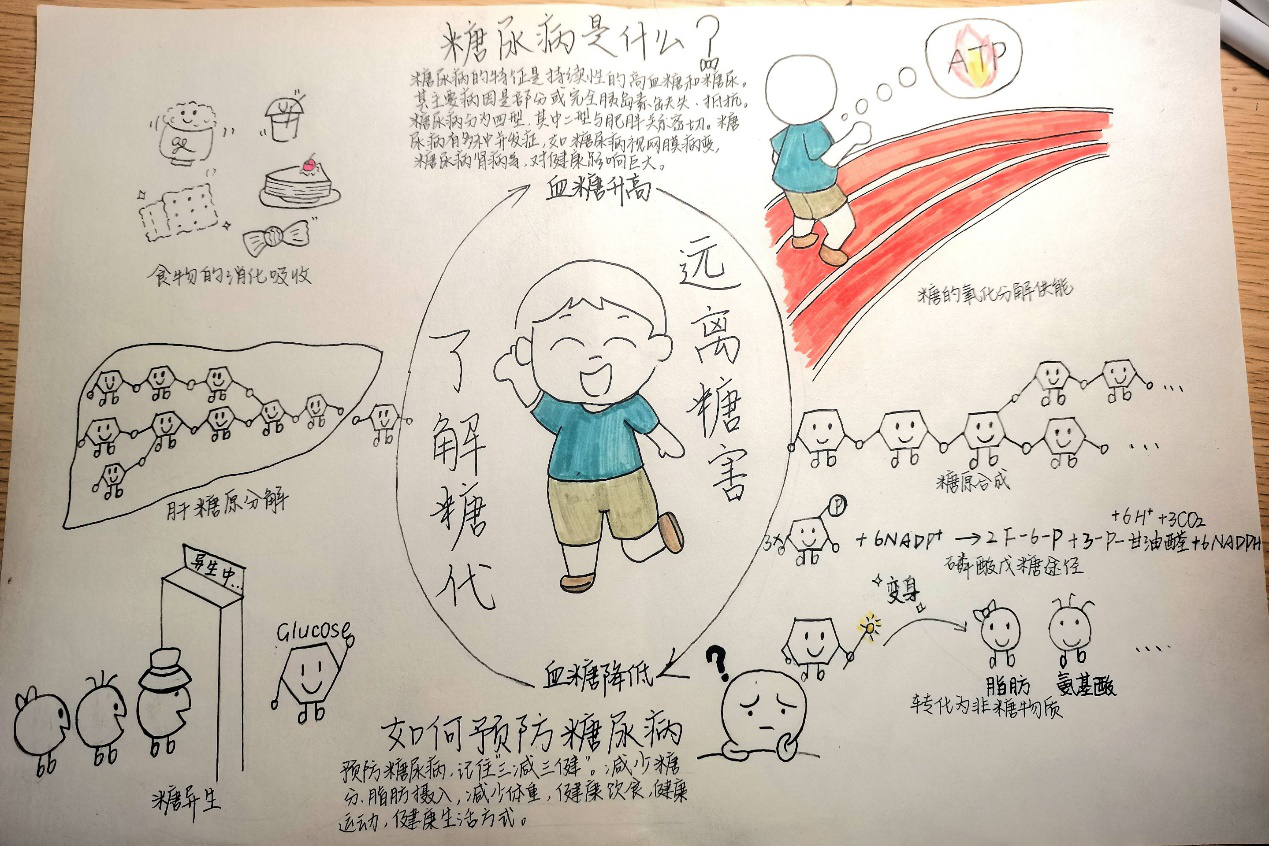 糖尿病是什么?
糖尿病的特征是持续性的高血糖和糖尿。
其主要病因是部分或完全胰岛素缺失、抵抗。
糖尿病分为四型,其中二型与肥胖关系密切。糖
尿病有多种并发症,如糖尿病视网膜病变,
糖尿病肾病等,对健康影响巨大。
ATP
血糖升高
食物的消化吸收
糖的氧化分解供能
了解糖代
远离糖害
肝糖原分解
糖原合成
P
+6H⁺ +3CO₂
3x + 6NADP⁺ → 2 F-6-P + 3-P-甘油醛 + 6NADPH
磷酸戊糖途径
异生中...
Glucose
糖异生
变身
脂肪 氨基酸
....
转化为非糖物质
血糖降低
?
如何预防糖尿病
预防糖尿病,记住"三减三健"。减少糖
分、脂肪摄入,减少体重,健康饮食,健康
运动,健康生活方式。